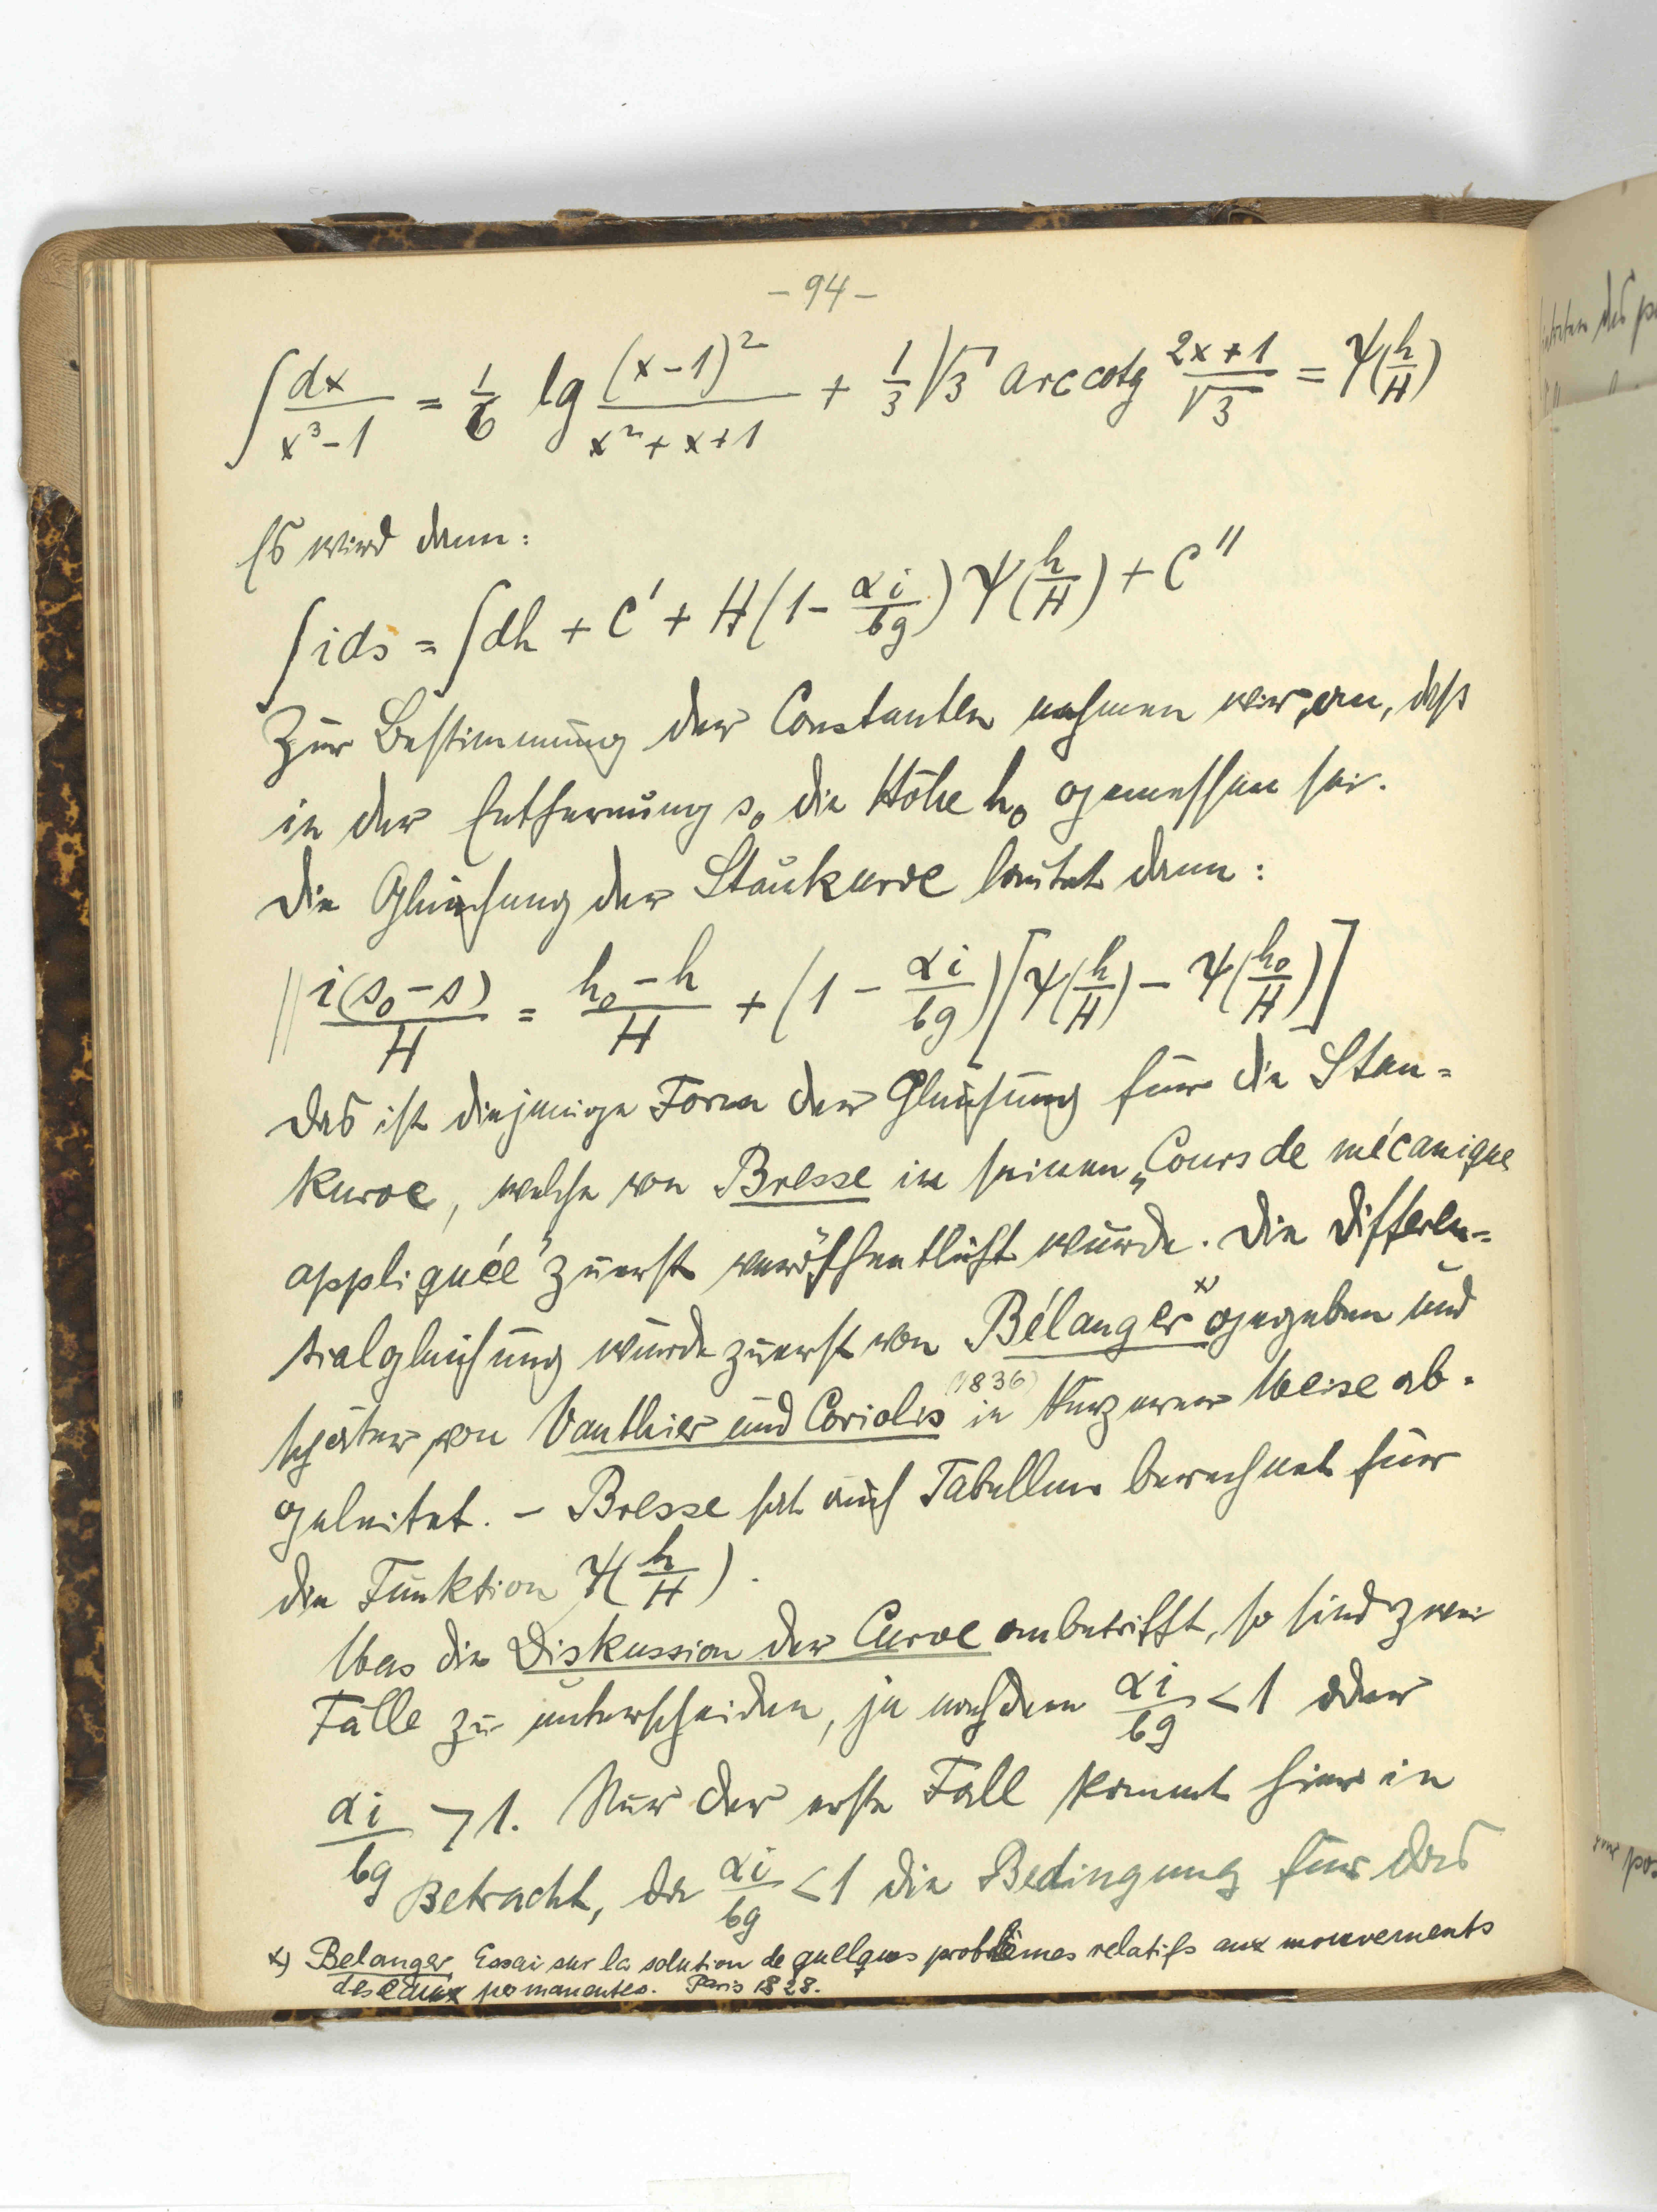 – 94 –
∫ dx/(x³-1) = 1/6 lg (x-1)²/(x²+x+1) + 1/3 √3 arc cotg (2x+1)/√3 = Ψ(h/H)
Es wird dann:
∫ i ds = ∫ dh + C' + H(1 - αi/bg) Ψ(h/H) + C''
Zur Bestimmung der Constanten nehmen wir an, daß
in der Entfernung s₀ die Höhe h₀ gemessen sei.
Die Gleichung der Staukurve lautet dann:
|| i(s₀-s)/H = (h₀-h)/H + (1 - αi/bg)[Ψ(h/H) - Ψ(h₀/H)]
Das ist diejenige Form der Gleichung für die Stau=
kurve, welche von Bresse in seinem „Cours de mécanique
appliquée" zuerst veröffentlicht wurde. Die Differen=
tialgleichung wurde zuerst von Bélanger x) gegeben und
später von Vauthier und Coriolis (1836) in kürzerer Weise ab=
geleitet. – Bresse hat auch Tabellen berechnet für
die Funktion Ψ(h/H).
Was die Diskussion der Curve anbetrifft, so sind zwei
Fälle zu unterscheiden, je nachdem αi/bg < 1 oder
αi/bg > 1. Nur der erste Fall kommt hier in
Betracht, da αi/bg < 1 die Bedingung für das
x) Belanger, Essai sur la solution de quelques problèmes relatifs aux mouvements
des eaux permanentes. Paris 1828.